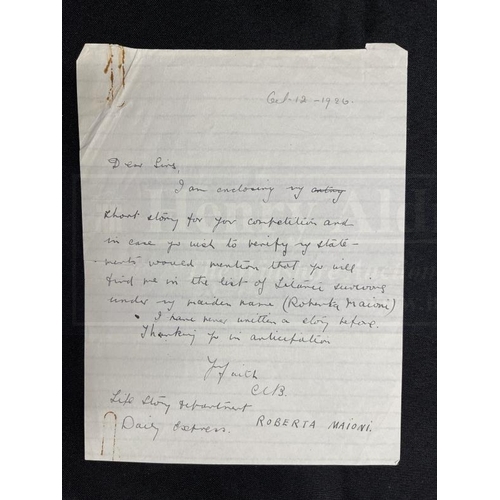 Oct-12-1926.
Dear Sirs,
I am enclosing my
short story for your competition and
in case you wish to verify my state-
ments would mention that you will
find me in the list of Titanic survivors
under my maiden name (Roberta Maioni)
I have never written a story before.
Thanking you in anticipation
Yrs faith
C.C.B.
Life Story Department
Daily Express.
ROBERTA MAIONI.